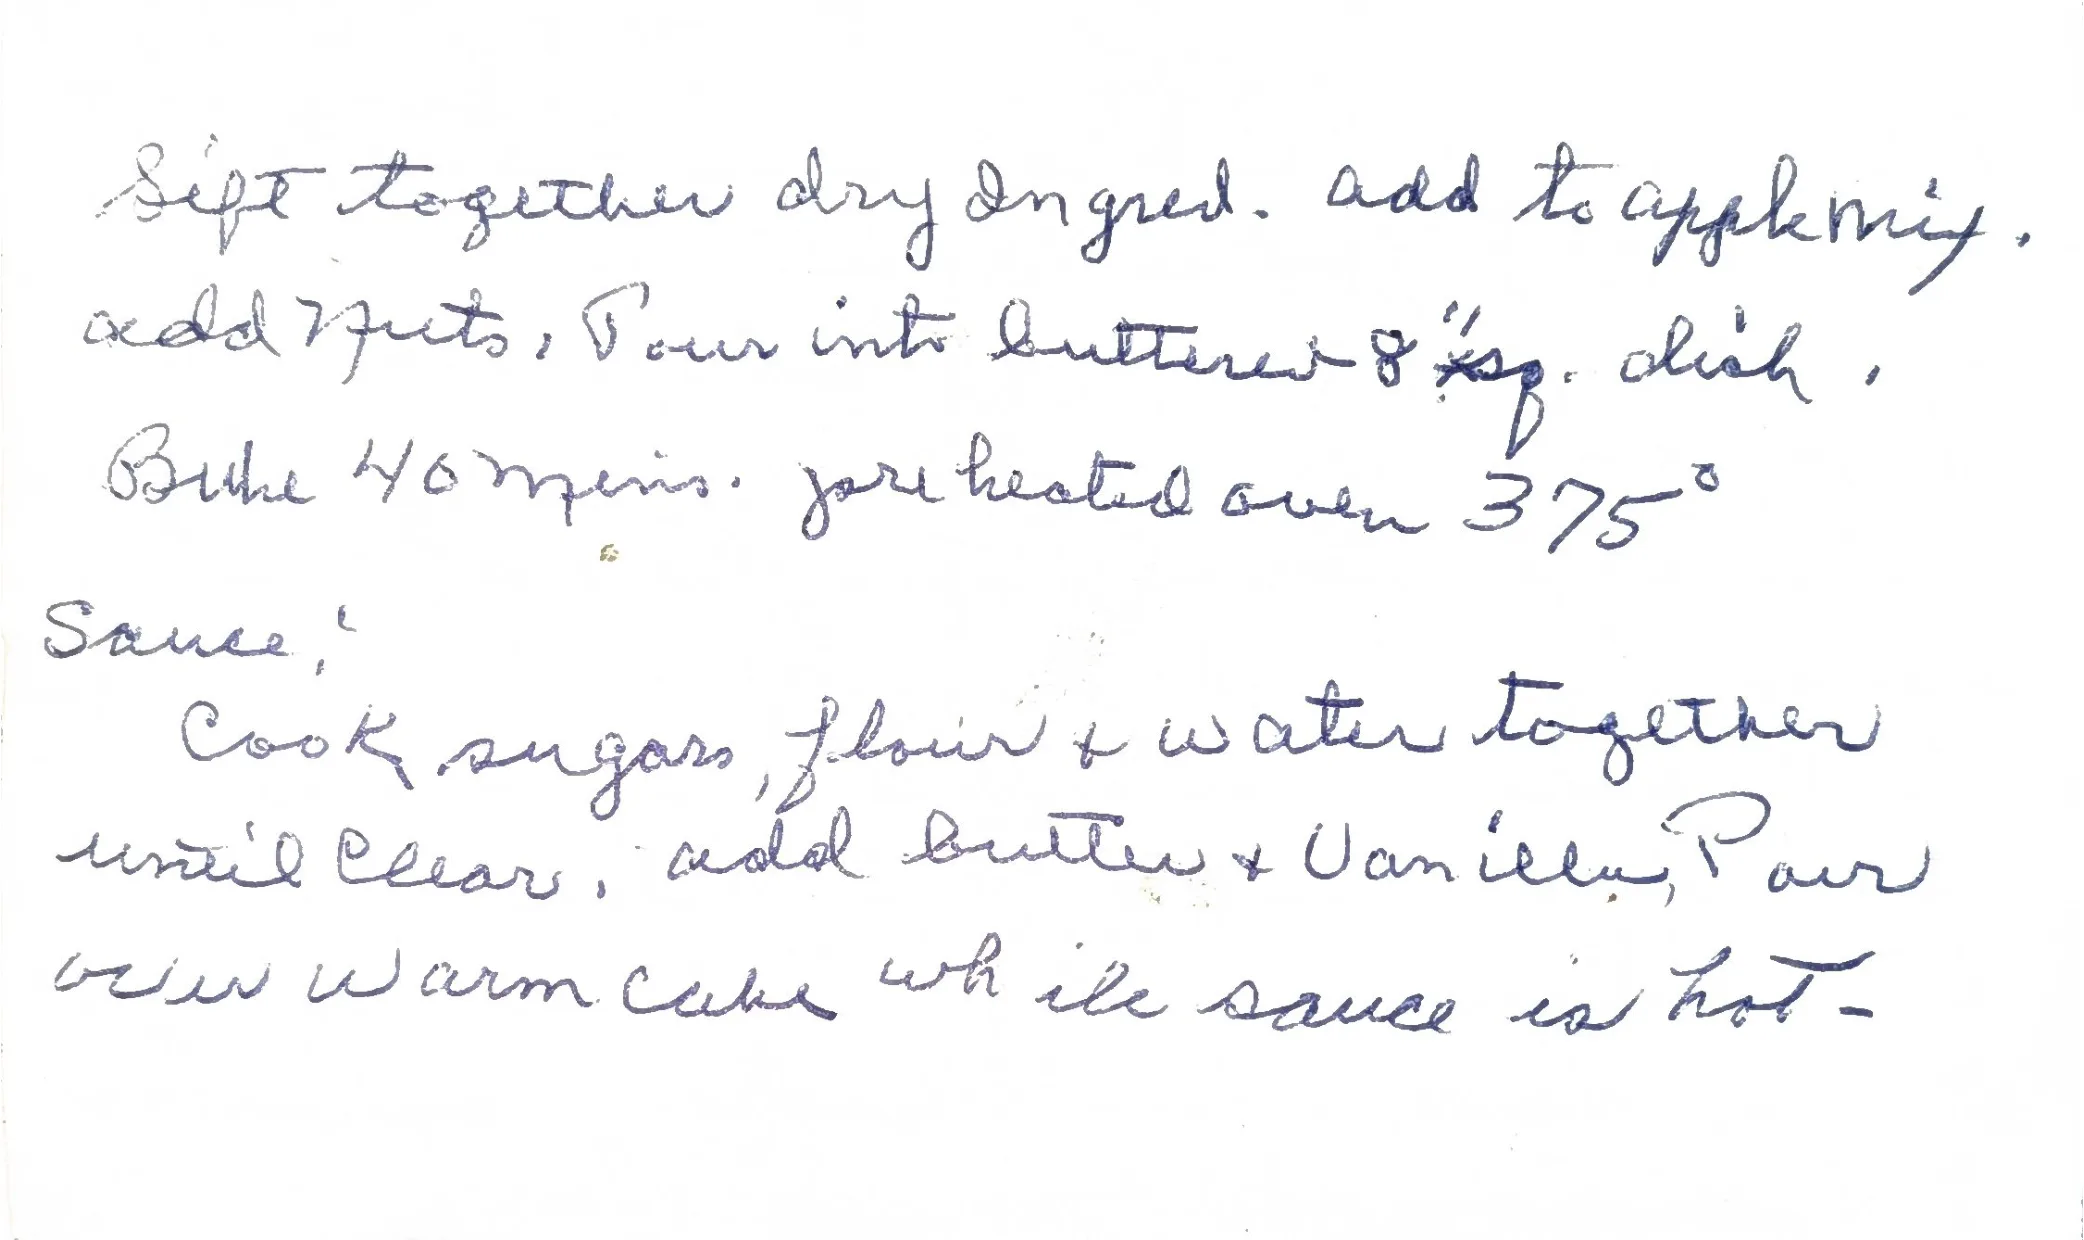 Sift together dry Ingred. add to apple mix.
add Nuts, Pour into buttered 8" sq. dish.
Bake 40 Mins. preheated oven 375°
Sauce:
Cook sugars, flour + water together
until Clear. add butter + Vanilla, Pour
over warm cake while sauce is hot-